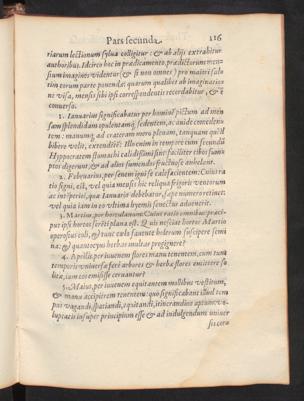 Pars secunda. 116
riarum lectionum sylua colligitur: & ab alijs extrahitur
authoribus. Idcirco hoc in prædicamento prædictorum men-
sium imagines videntur (& si non omnes) pro maiori salu
tim eorum parte ponendæ: quarum qualibet ab imaginan
te visa, mensis sibi ipsi correspondentis recordabitur, & è
conuerso.
1. Ianuarius significabatur per hominẽ pictum ad men
sam splendidam opulentamq́; sedentem, ac auidè comeden
tem: manumq́; ad crateram mero plenam, tanquam qui id
bibere velit, extendẽtẽ: Illo enim in tempore cum secundũ
Hippocratem stomachi calidissimi sint: faciliter cibos sump
tos digerunt, & ad alios sumendos fructuosè anhelant.
2. Februarius, per senem igni se calefacientem: Cuius ra
tio signi, est, vel quia mensis hic reliqua frigoris ventorum
ac intẽperiei, quæ Ianuario debebatur, sæpe numero retinet:
vel quia iam in eo vltima hyemis senectus aduenerit.
3. Martius, per hortulanum: Cuius ratio omnibus præci-
puè ipsis hortos seréti plana est. Quis nesciat hortos Martio
operosius coli, & tunc cœlo fauente holerum suscipere semi
na: & quantocyus herbas multas progignere?
4. Aprilis, per iuuenem flores manu tenentem, cum tunc
temporis vniuersæ ferè arbores & herbæ flores emittere so
liti, iam eos emisisse cernantur?
5. Maius, per iuuenem equitantem mollibus vestitum,
& manu accipitrem tenentem: quo significabant illud tem
pus vagandi, spatiandi, equitandi, itinerandiue aptum: vo-
luptatis insuper principium esse & ad indulgendum vniuer